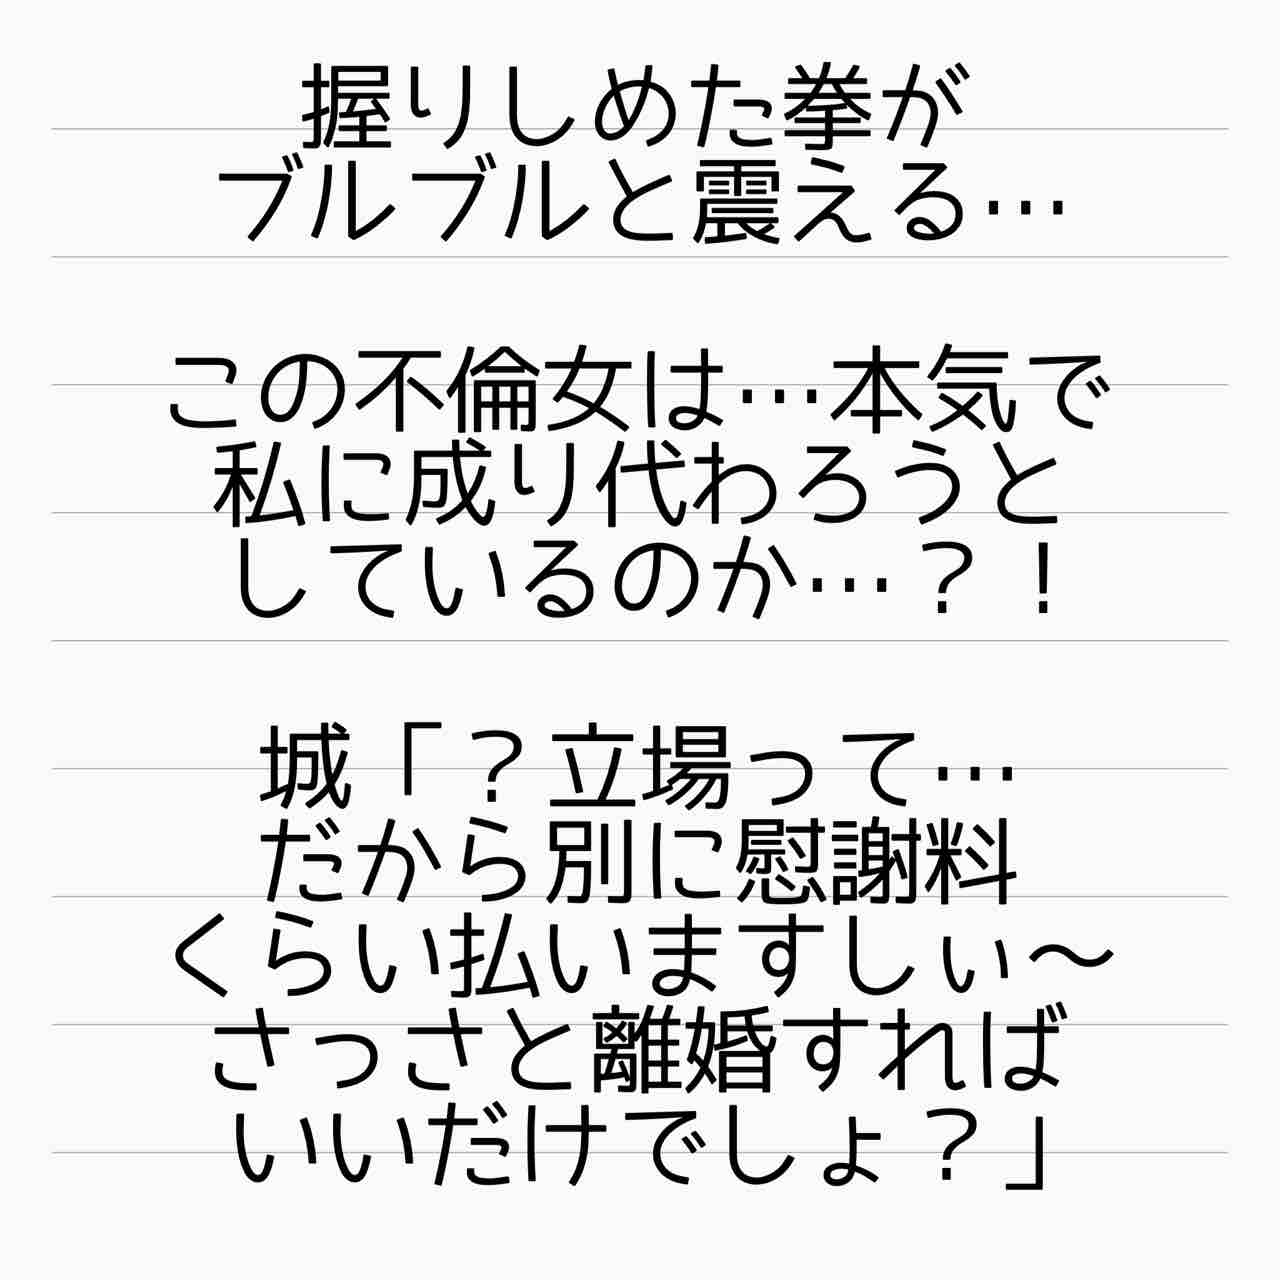 握りしめた拳が
ブルブルと震える…
この不倫女は…本気で
私に成り代わろうと
しているのか…？！
城「？立場って…
だから別に慰謝料
くらい払いますしぃ〜
さっさと離婚すれば
いいだけでしょ？」